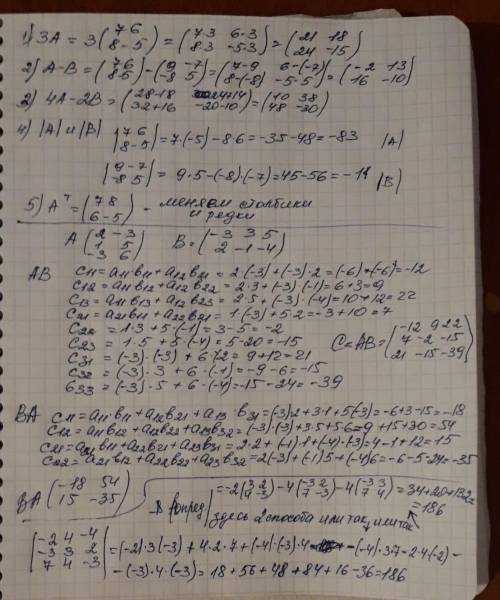 1) 3A = 3(7 6 / 8 -5) = (7·3 6·3 / 8·3 -5·3) = (21 18 / 24 -15)
2) A-B = (7 6 / 8 5) - (9 -7 / -8 5) = (7-9 6-(-7) / 8-(-8) -5-5) = (-2 13 / 16 -10)
3) 4A-2B = (28-18 24+14 / 32+16 -20-10) = (10 38 / 48 -30)
4) |A| и |B| |7 6 / 8 -5| = 7·(-5) -8·6 = -35-48 = -83 |A|
|9 -7 / -8 5| = 9·5-(-8)·(-7) = 45-56 = -11 |B|
5) Aᵀ = (7 8 / 6 -5) - меняем столбики и рядки
A (2 -3 / 1 5 / -3 6) B = (-3 3 5 / 2 -1 -4)
AB C11 = a11b11 + a12b21 = 2·(-3)+(-3)·2 = (-6)+(-6) = -12
C12 = a11b12 + a12b22 = 2·3+(-3)·(-1) = 6+3 = 9
C13 = a11b13 + a12b23 = 2·5+(-3)·(-4) = 10+12 = 22
C21 = a21b11 + a22b21 = 1·(-3)+5·2 = -3+10 = 7
C22 = 1·3+5·(-1) = 3-5 = -2
C23 = 1·5+5·(-4) = 5-20 = -15
C31 = (-3)·(-3)+6·2 = 9+12 = 21
C32 = (-3)·3+6·(-1) = -9-6 = -15
C33 = (-3)·5+6·(-4) = -15-24 = -39
C = AB = (-12 9 22 / 7 -2 -15 / 21 -15 -39)
BA C11 = a11b11 + a12b21 + a13·b31 = (-3)·2+3·1+5(-3) = -6+3-15 = -18
C12 = a11b12 + a12b22 + a13b32 = (-3)·(-3)+3·5+5·6 = 9+15+30 = 54
C21 = a21b11 + a22b21 + a23b31 = 2·2+(-1)·1+(-4)·(-3) = 4-1+12 = 15
C22 = a21b12 + a22b22 + a23b32 = 2(-3)+(-1)5+(-4)6 = -6-5-24 = -35
BA (-18 54 / 15 -35)
= -2(3 2 / 4 -3) -4(-3 2 / 7 -3) -4(-3 3 / 7 4) = 34+20+132 = 186
здесь 2 способа или так, или так
|-2 4 -4 / -3 3 2 / 7 4 -3| = (-2)·3(-3)+4·2·7+(-4)·(-3)·4 -(-4)·3·7-2·4(-2)-
-(-3)·4·(-3) = 18+56+48+84+16-36 = 186